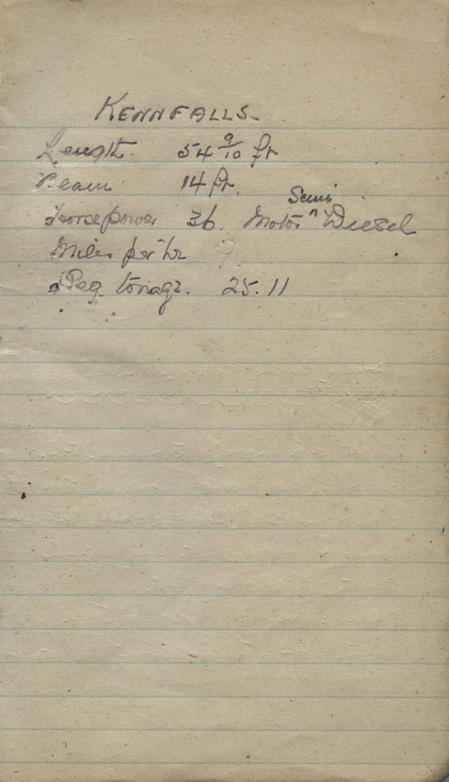 KENNFALLS
Length 54 9/10 ft
Beam 14 ft.
Horsepower 36. Motor ^ Semi Diesel
Miles per hr 9.
Reg. tonage. 25.11